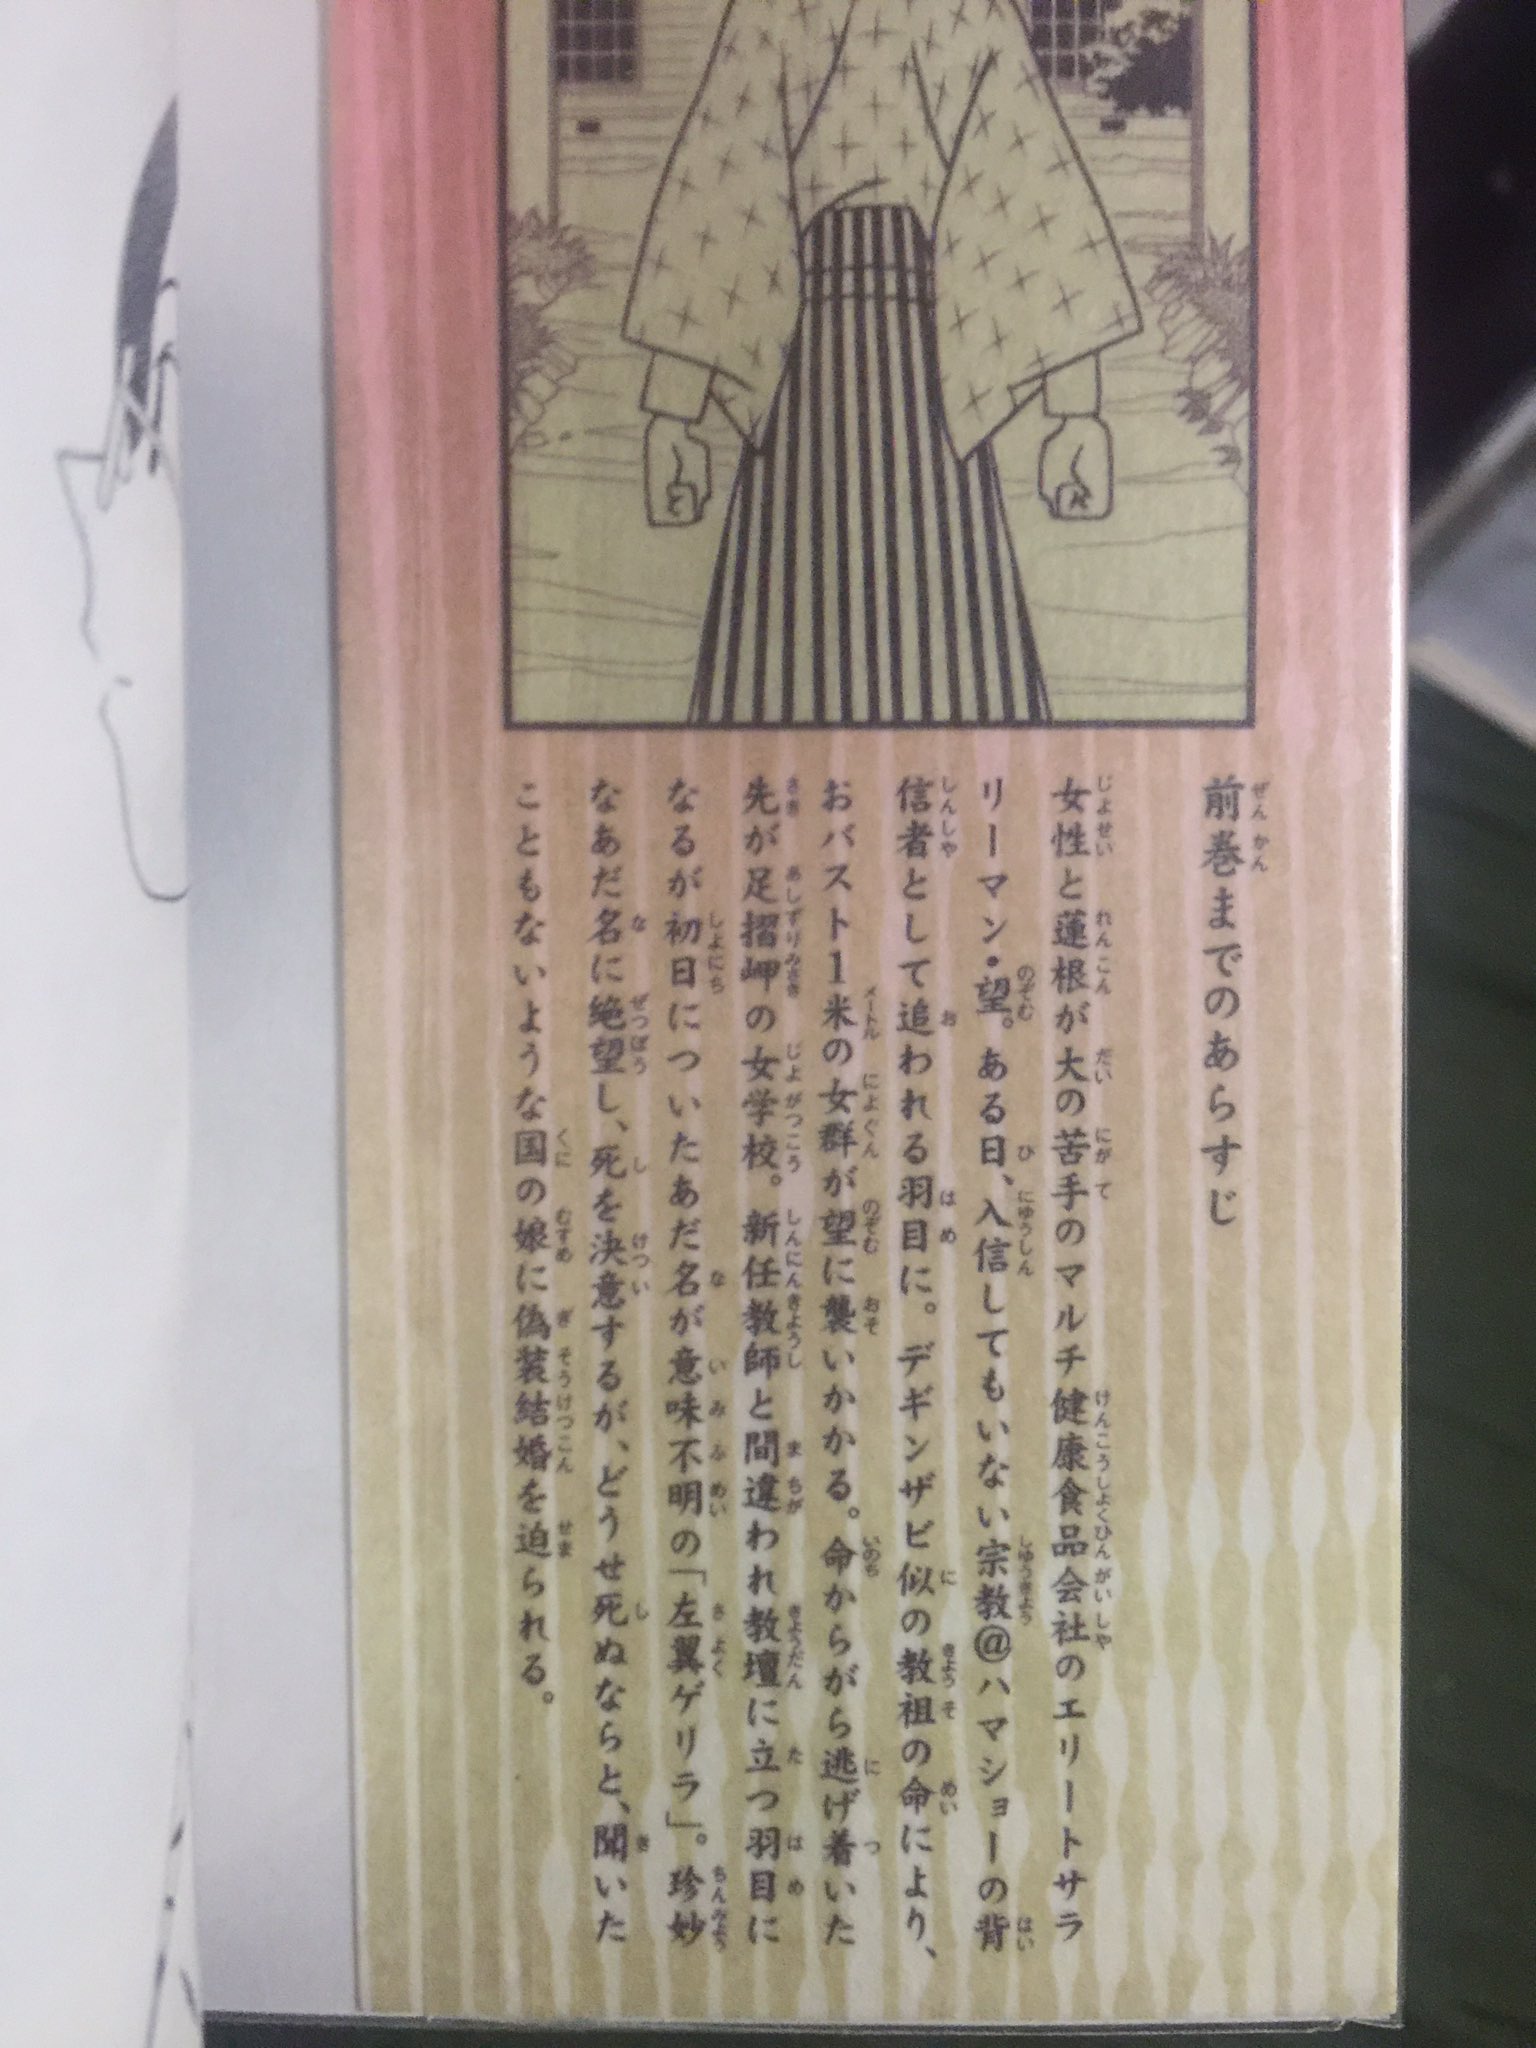 前巻までのあらすじ
女性と蓮根が大の苦手のマルチ健康食品会社のエリートサラ
リーマン・望。ある日、入信してもいない宗教@ハマショーの背
信者として追われる羽目に。デギンザビ似の教祖の命により、
おバスト1米の女群が望に襲いかかる。命からがら逃げ着いた
先が足摺岬の女学校。新任教師と間違われ教壇に立つ羽目に
なるが初日についたあだ名が意味不明の「左翼ゲリラ」。珍妙
なあだ名に絶望し、死を決意するが、どうせ死ぬならと、聞いた
こともないような国の娘に偽装結婚を迫られる。